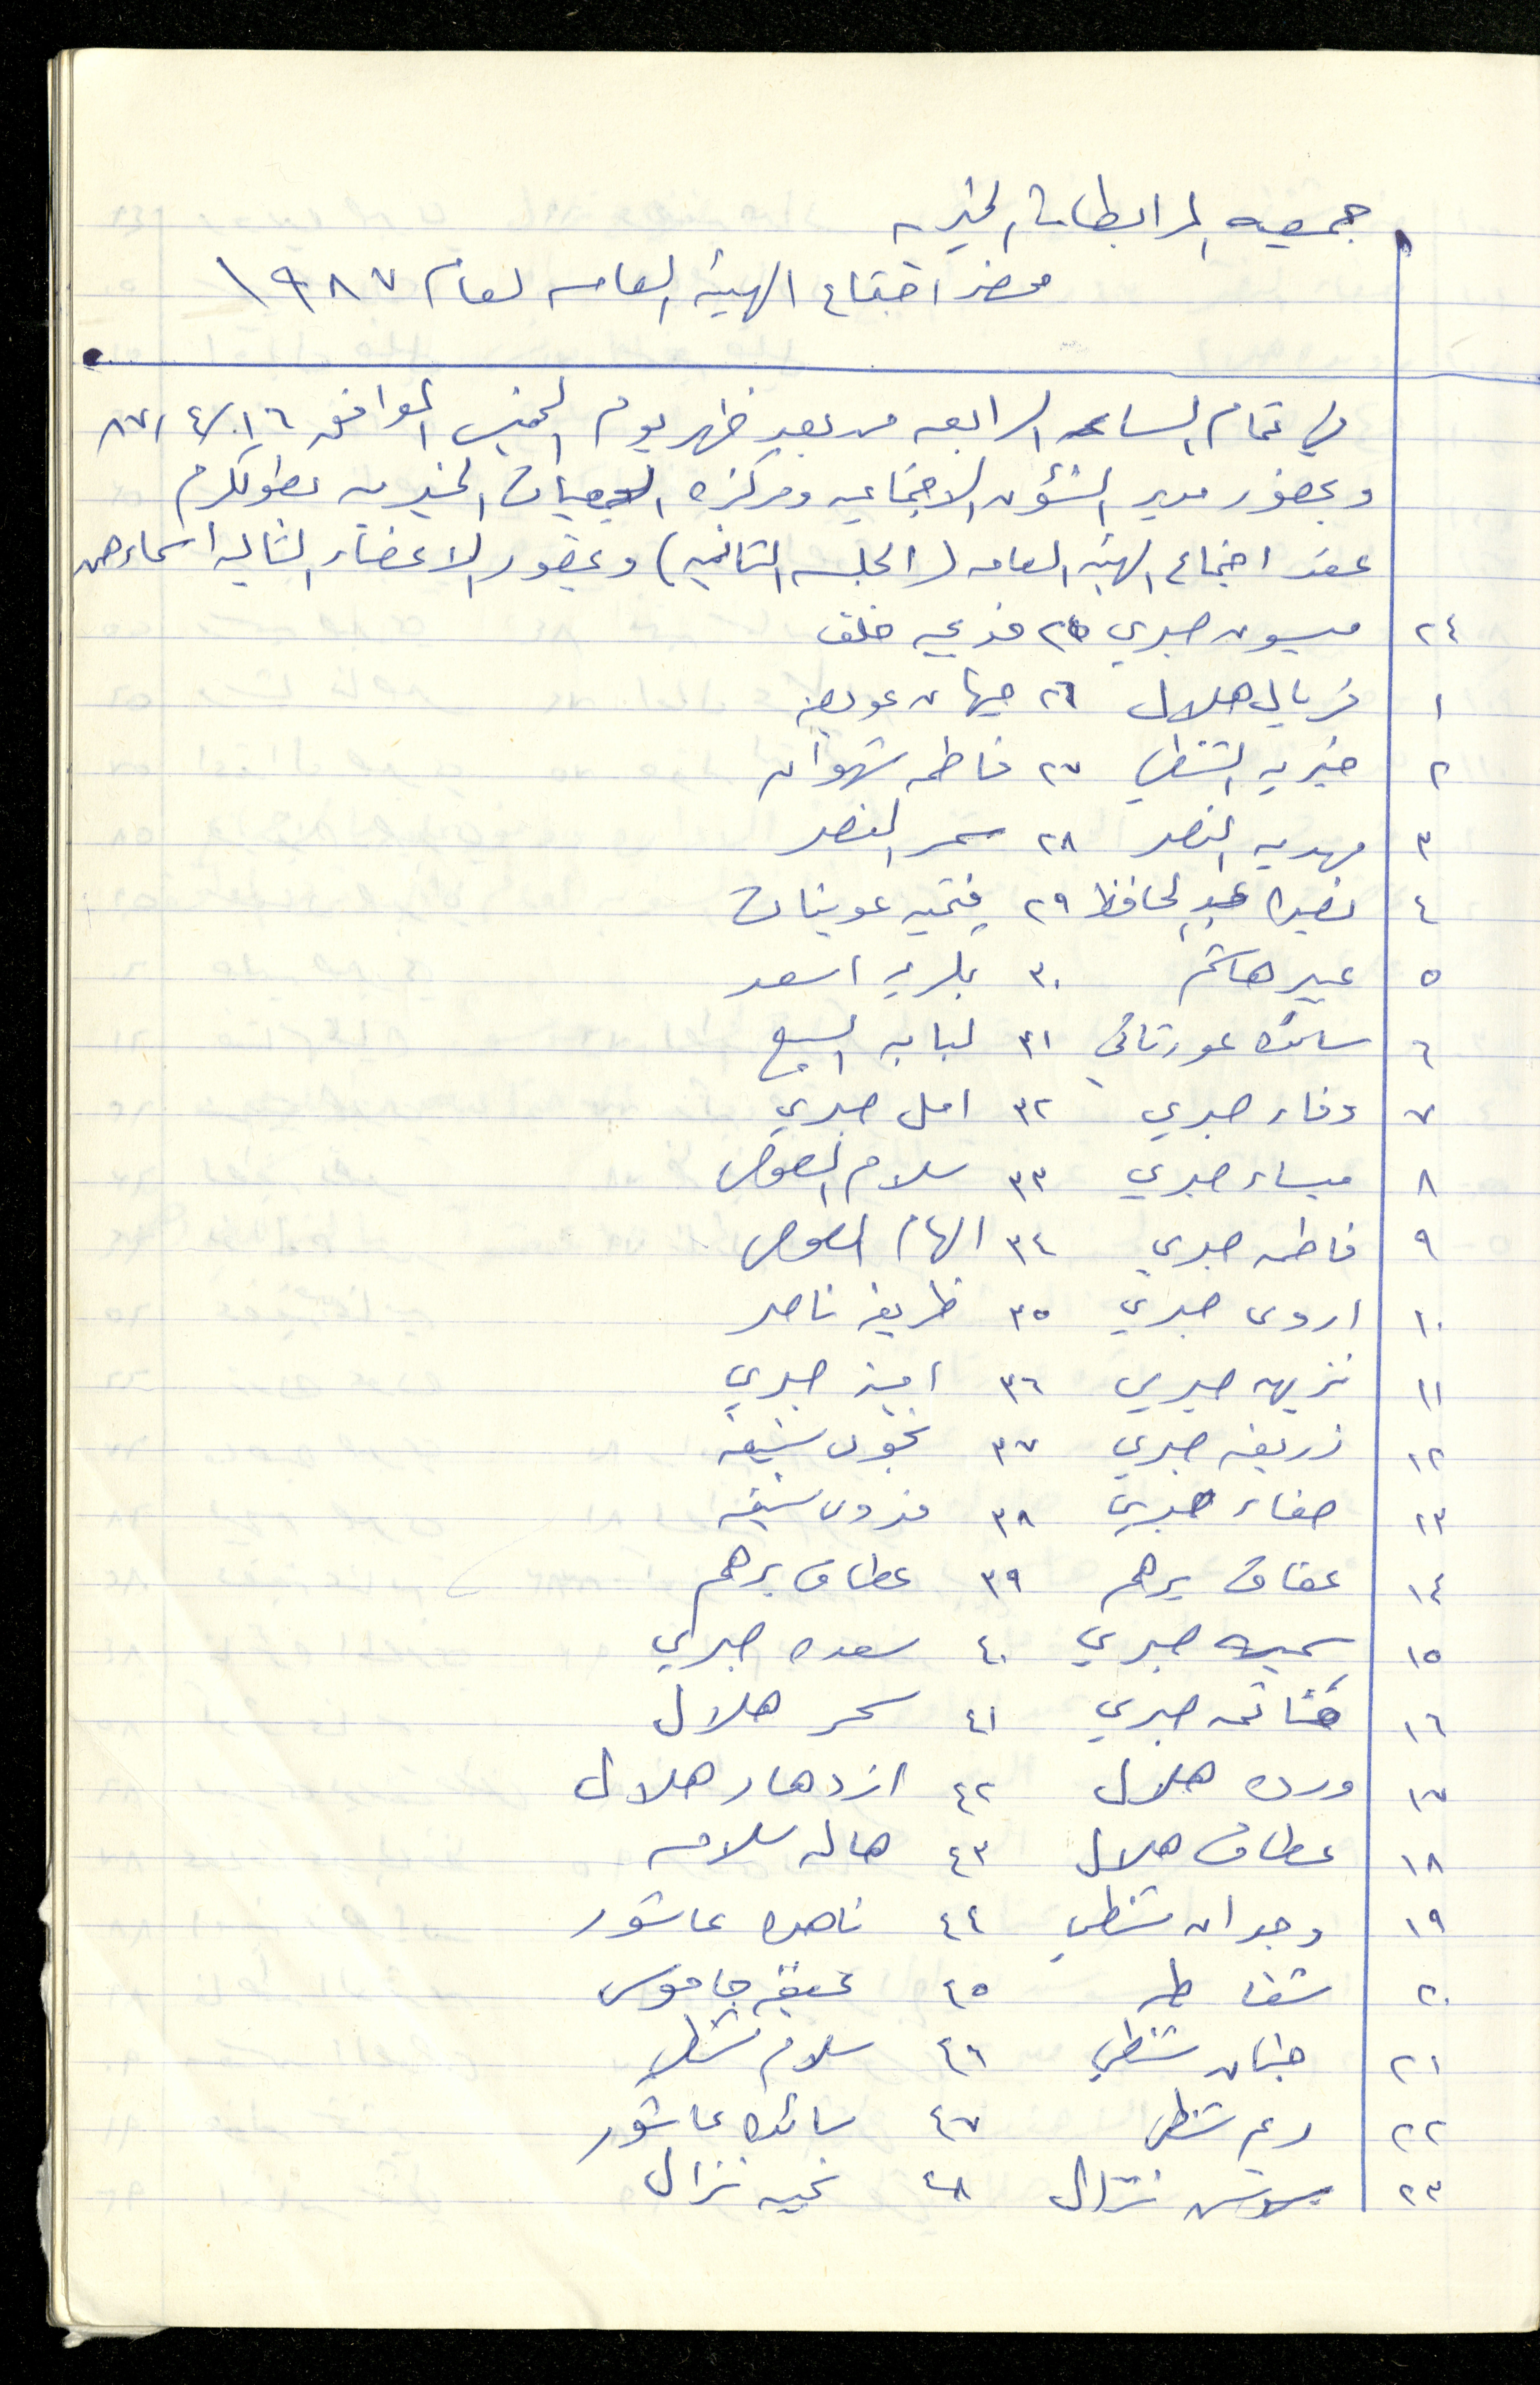 جمعيه المرابطات الخيريه
محضر اجتماع الهيئه العامه لعام ١٩٨٧
في تمام الساعه الرابعه من بعد ظهر يوم الخميس الموافق ١٦/٤/٨٧
وبحضور مدير الشؤون الاجتماعيه ومركزه الجمعيات الخيريه بطولكرم
عقد اجتماع الهيئه العامه (الجلسه الثانيه) وبحضور الاعضاء التاليه اسماءهن
٢٤ ميسون صبري ٢٥ فوزيه خلف
١ فريال هلال ٢٦ جيهان عويضه
٢ خيريه الشنطي ٢٧ فاطمه شهوان
٣ مهديه النصر ٢٨ سمر النصر
٤ نصيره عبد الحافظ ٢٩ فتحيه عوينات
٥ عبير هاشم ٣٠ بدريه اسعد
٦ سائده عورتاني ٣١ لبابه السبع
٧ وفاء صبري ٣٢ امل صبري
٨ ميساء صبري ٣٣ سلام الصوص
٩ فاطمه صبري ٣٤ الهام الصوص
١٠ اروى صبري ٣٥ ظريفه ناصر
١١ نزيهه صبري ٣٦ امينه صبري
١٢ زريفه صبري ٣٧ نجوى
١٣ صفاء صبري ٣٨ فدوى
١٤ عفاف برهم ٣٩ عطاف برهم
١٥ سميره صبري ٤٠ سعده صبري
١٦ صبري ٤١ سحر هلال
١٧ ورده هلال ٤٢ ازدهار هلال
١٨ عطاف هلال ٤٣ هاله سلامه
١٩ وجدان شنطي ٤٤ ناهده عاشور
٢٠ شفا طه ٤٥ عفيفه جاموس
٢١ حنان شنطي ٤٦ سلام شنطي
٢٢ ريم شنطي ٤٧ سائده عاشور
٢٣ نزال ٤٨ نزال